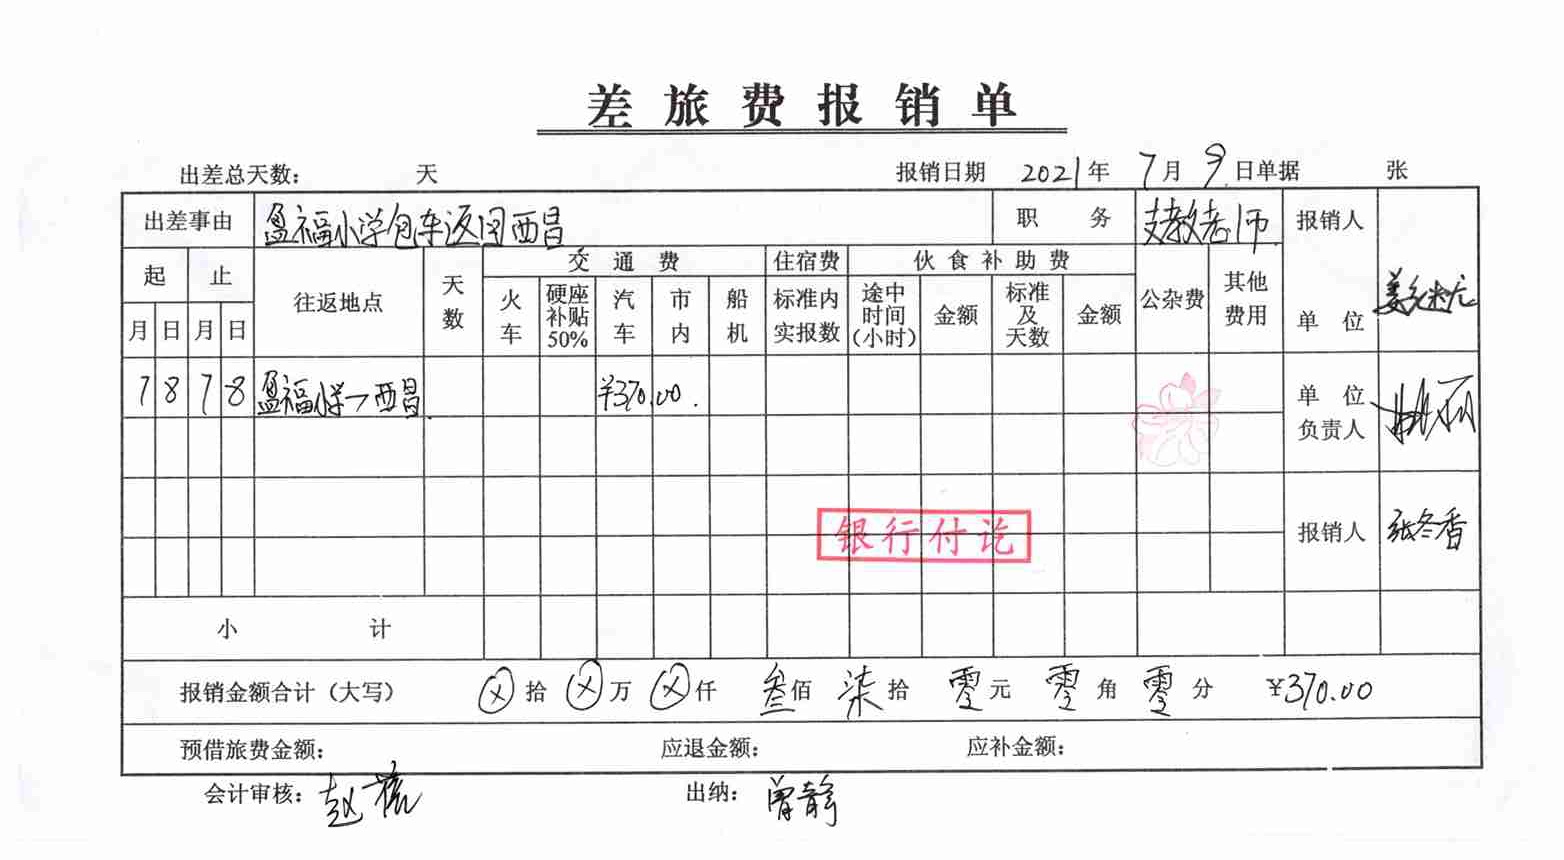 差旅费报销单
出差总天数： 天 报销日期 2021年 7月 9日 单据 张
出差事由 盈福小学包车返回西昌 职务 支教老师 报销人
起 止 往返地点 天数 交通费 住宿费 伙食补助费 公杂费 其他费用 单位
月 日 月 日 火车 硬座补贴50% 汽车 市内 船机 标准内实报数 途中时间(小时) 金额 标准及天数 金额
7 8 7 8 盈福小学→西昌 ¥370.00 单位负责人
银行付讫 报销人 张冬香
小计
报销金额合计（大写） ⊗拾 ⊗万 ⊗仟 叁佰 柒拾 零元 零角 零分 ¥370.00
预借旅费金额： 应退金额： 应补金额：
会计审核： 出纳： 曾静